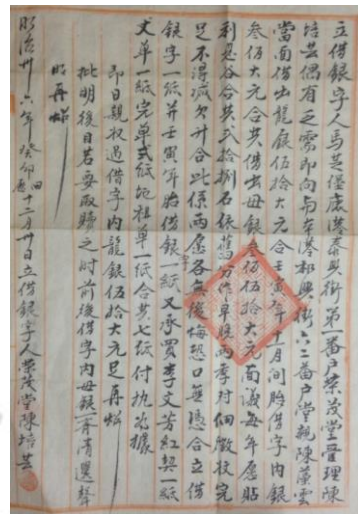 立借銀字人馬芝堡鹿港泰興街第一番戶榮茂堂管理陳
培芸偶有乏需即向與本港北興街六二番戶堂親陳蘭雲
當面借出龍銀伍拾大元合壬寅年十一月間胎借字內銀
叁佰大元合共借出母銀叁佰伍拾大元面約每年愿貼
利息谷合共弍拾捌石依舊四分作早晚兩季對佃徵收完
足不得減欠升合此係兩愿各無後悔恐口無憑合立借
銀字一紙并壬寅年胎借銀一紙又承買李文芳紅契一紙
丈單一紙完單弍紙地租單一紙合共七紙付执為據
即日親收過借字內龍銀伍拾大元足再炤
批明後日若要取贖之時前後借字內母銀一齊清還聲
明再炤
明治卅六年癸卯 十二月卅日立借銀字人榮茂堂陳培芸